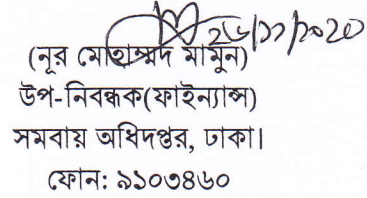 ২৬/১১/২০২০
(নূর মোহাম্মদ মামুন)
উপ-নিবন্ধক(ফাইন্যান্স)
সমবায় অধিদপ্তর, ঢাকা।
ফোন: ৯১০৩৪৬০